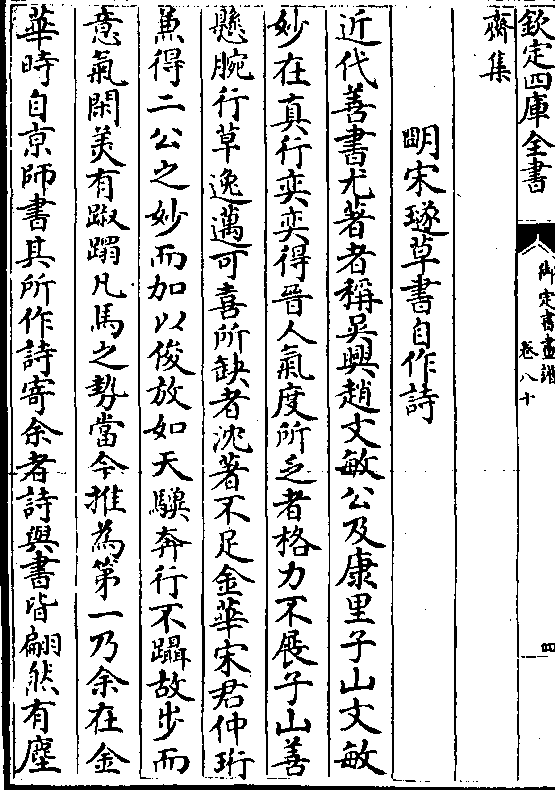 欽定四庫全書
御定書畫譜
卷八十
四
齋集
明宋璲草書自作詩
近代善書尤著者稱吳興趙文敏公及康里子山文敏
妙在真行奕奕得晉人氣度所乏者格力不展子山善
懸腕行草逸邁可喜所缺者沈著不足金華宋君仲珩
兼得二公之妙而加以俊放如天驥奔行不躡故步而
意氣閑美有蹴蹋凡馬之勢當今推為第一乃余在金
華時自京師書其所作詩寄余者詩與書皆翩然有塵